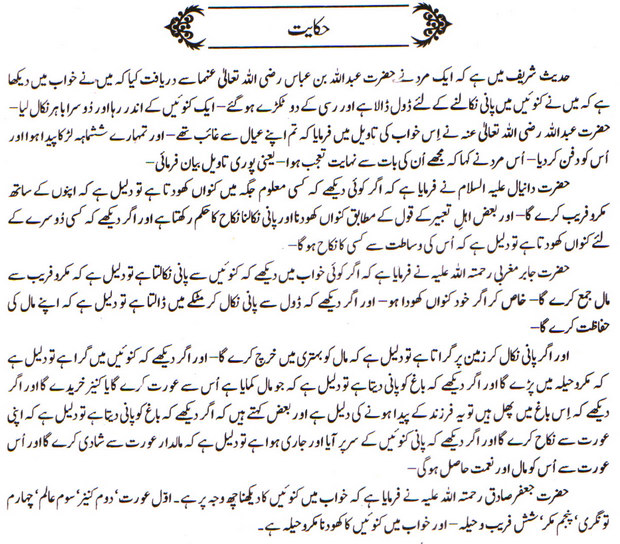 حکایت
حدیث شریف میں ہے کہ ایک مرد نے حضرت عبداللہ بن عباس رضی اللہ تعالیٰ عنہما سے دریافت کیا کہ میں نے خواب میں دیکھا
ہے کہ میں نے کنوئیں میں پانی نکالنے کے لئے ڈول ڈالا ہے اور رسی کے دو ٹکڑے ہو گئے – ایک کنوئیں کے اندر رہا اور دوسرا باہر نکال لیا –
حضرت عبداللہ رضی اللہ تعالیٰ عنہ نے اِس خواب کی تاویل میں فرمایا کہ تم اپنے عیال سے غائب تھے – اور تمہارے ششماہہ لڑکا پیدا ہوا اور
اُس کو دفن کر دیا – اُس مرد نے کہا کہ مجھے اُن کی بات سے نہایت تعجب ہوا – یعنی پوری تاویل بیان فرمائی –
حضرت دانیال علیہ السلام نے فرمایا ہے کہ اگر کوئی دیکھے کہ کسی معلوم جگہ میں کنواں کھودتا ہے تو دلیل ہے کہ اپنوں کے ساتھ
مکر و فریب کرے گا – اور بعض اہلِ تعبیر کے قول کے مطابق کنواں کھودنا اور پانی نکالنا نکاح کا حکم رکھتا ہے اور اگر دیکھے کہ کسی دوسرے کے
لئے کنواں کھودتا ہے تو دلیل ہے کہ اُس کی وساطت سے کسی کا نکاح ہو گا –
حضرت جابر مغربی رحمتہ اللہ علیہ نے فرمایا ہے کہ اگر کوئی خواب میں دیکھے کہ کنوئیں سے پانی نکالتا ہے تو دلیل ہے کہ مکر و فریب سے
مال جمع کرے گا – خاص کر اگر خود کنواں کھودا ہو – اور اگر دیکھے کہ ڈول سے پانی نکال کر مٹکے میں ڈالتا ہے تو دلیل ہے کہ اپنے مال کی
حفاظت کرے گا –
اور اگر پانی نکال کر زمین پر گراتا ہے تو دلیل ہے کہ مال کو بہتری میں خرچ کرے گا – اور اگر دیکھے کہ کنوئیں میں گرا ہے تو دلیل ہے
کہ مکر و حیلہ میں پڑے گا اور اگر دیکھے کہ باغ کو پانی دیتا ہے تو دلیل ہے کہ جو مال کمایا ہے اُس سے عورت کرے گا یا کنیز خریدے گا اور اگر
دیکھے کہ اِس باغ میں پھل ہیں تو یہ فرزند کے پیدا ہونے کی دلیل ہے اور بعض کہتے ہیں کہ اگر دیکھے کہ باغ کو پانی دیتا ہے تو دلیل ہے کہ اپنی
عورت سے نکاح کرے گا اور اگر دیکھے کہ پانی کنوئیں کے سر پر آیا اور جاری ہوا ہے تو دلیل ہے کہ مالدار عورت سے شادی کرے گا اور اُس
عورت سے اُس کو مال اور نعمت حاصل ہو گی –
حضرت جعفر صادق رحمتہ اللہ علیہ نے فرمایا ہے کہ خواب میں کنوئیں کا دیکھنا چھ وجہ پر ہے۔ اوّل عورت‘ دوم کنیز‘ سوم عالم‘ چہارم
تونگری‘ پنجم مکر‘ شش فریب و حیلہ – اور خواب میں کنوئیں کا کھودنا مکر و حیلہ ہے۔